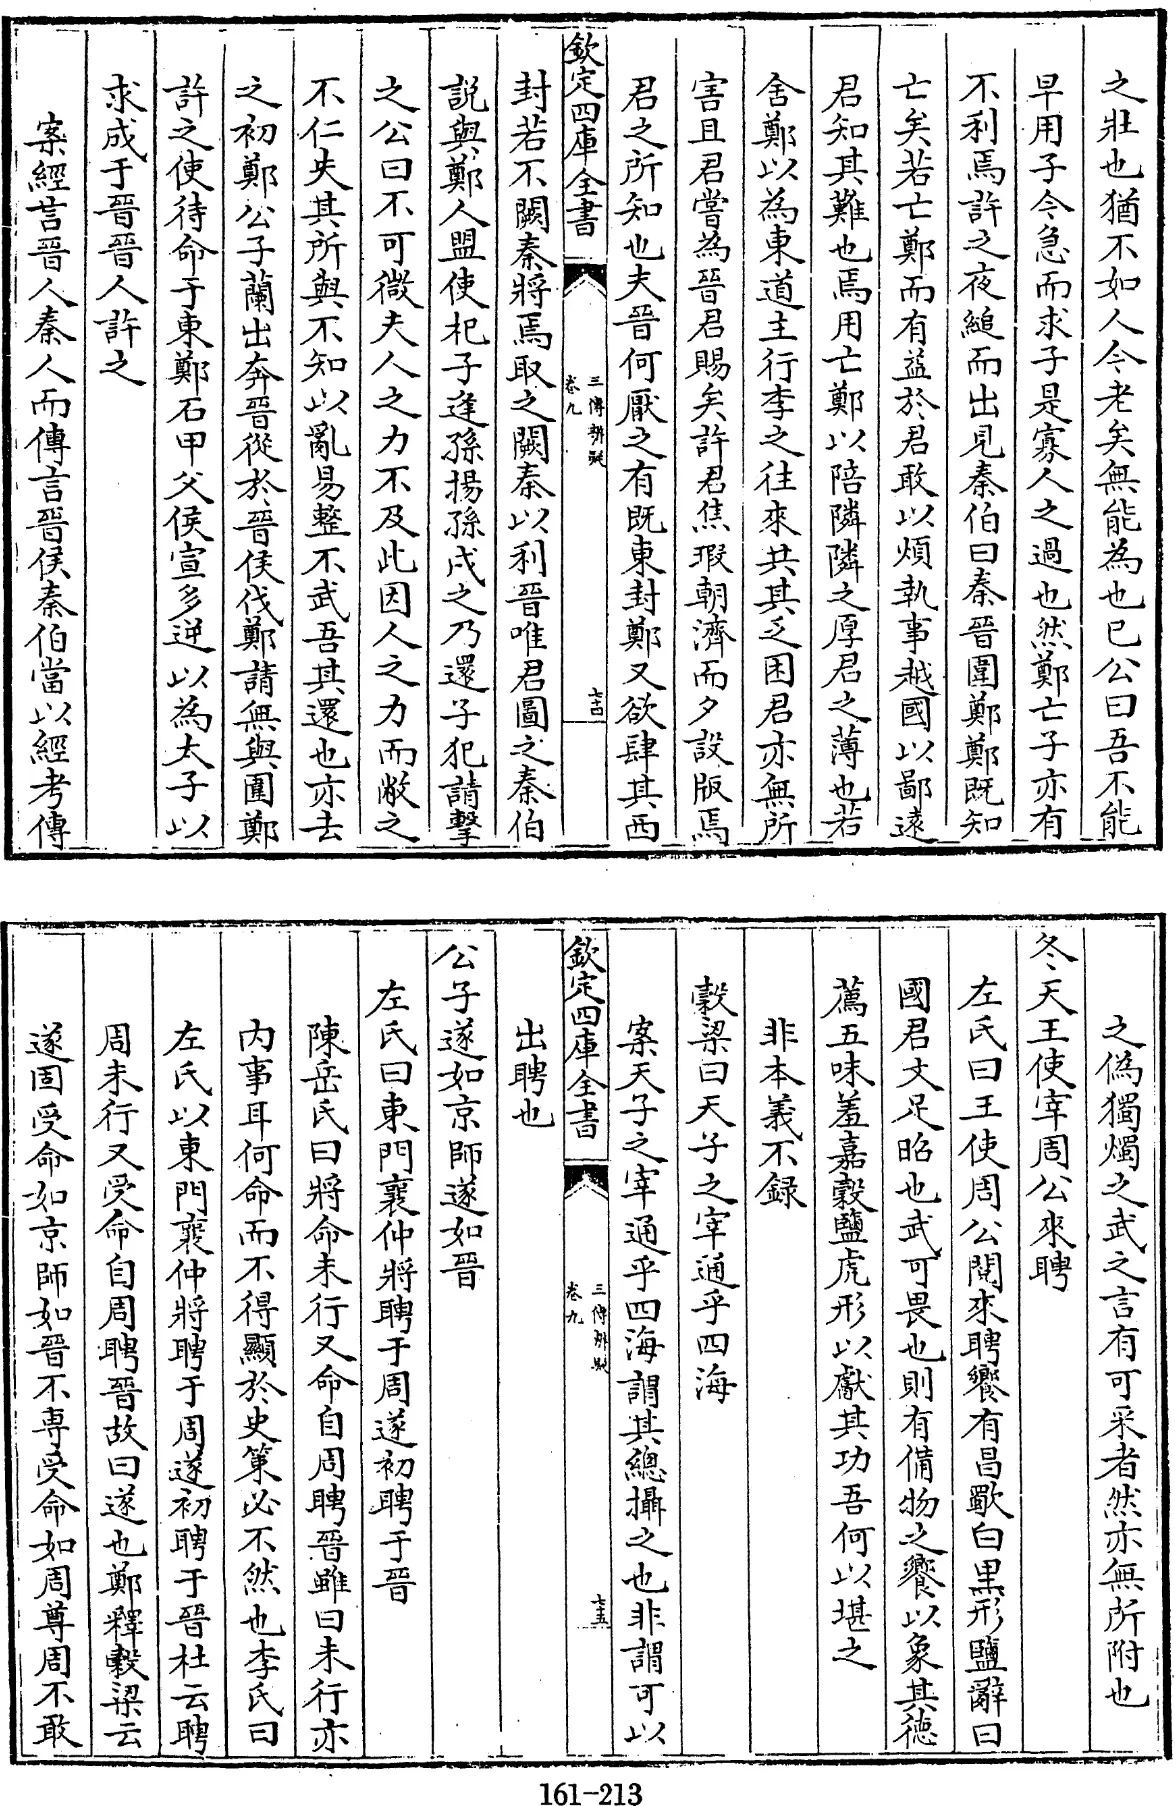 之壯也猶不如人今老矣無能為也已公曰吾不能
早用子今急而求子是寡人之過也然鄭亡子亦有
不利焉許之夜縋而出見秦伯曰秦晉圍鄭鄭既知
亡矣若亡鄭而有益於君敢以煩執事越國以鄙遠
君知其難也焉用亡鄭以陪隣隣之厚君之薄也若
舍鄭以為東道主行李之往來共其乏困君亦無所
害且君嘗為晉君賜矣許君焦瑕朝濟而夕設版焉
君之所知也夫晉何厭之有既東封鄭又欲肆其西
欽定四庫全書
三傳辨疑
卷九
七十四
封若不闕秦將焉取之闕秦以利晉唯君圖之秦伯
説與鄭人盟使杞子逢孫揚孫戍之乃還子犯請擊
之公曰不可微夫人之力不及此因人之力而敝之
不仁失其所與不知以亂易整不武吾其還也亦去
之初鄭公子蘭出奔晉從於晉侯伐鄭請無與圍鄭
許之使待命于東鄭石甲父侯宣多逆以為太子以
求成于晉晉人許之
案經言晉人秦人而傳言晉侯秦伯當以經考傳
之偽獨燭之武之言有可采者然亦無所附也
冬天王使宰周公來聘
左氏曰王使周公閱來聘饗有昌歜白黒形鹽辭曰
國君文足昭也武可畏也則有備物之饗以象其徳
薦五味羞嘉穀鹽虎形以獻其功吾何以堪之
非本義不録
穀梁曰天子之宰通乎四海
案天子之宰通乎四海謂其總攝之也非謂可以
欽定四庫全書
三傳辨疑
卷九
七十五
出聘也
公子遂如京師遂如晉
左氏曰東門襄仲將聘于周遂初聘于晉
陳岳氏曰將命未行又命自周聘晉雖曰未行亦
内事耳何命而不得顯於史策必不然也李氏曰
左氏以東門襄仲將聘于周遂初聘于晉杜云聘
周未行又受命自周聘晉故曰遂也鄭釋穀梁云
遂固受命如京師如晉不専受命如周尊周不敢
161-213